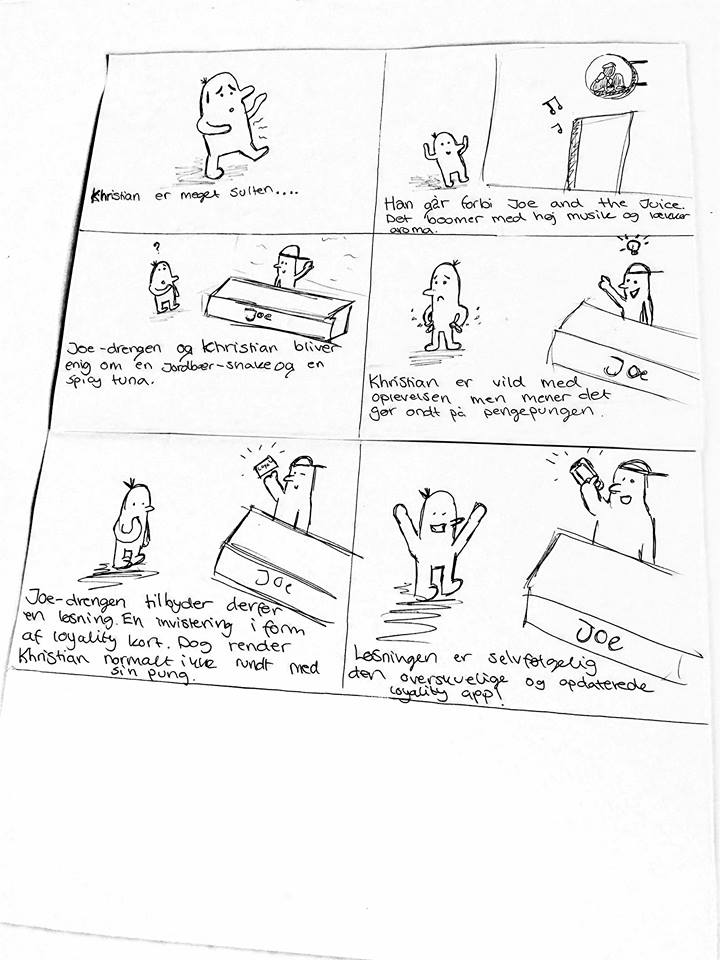 Khristian er meget sulten....
Han går forbi Joe and the Juice.
Det boomer med høj musik og lækker
aroma.
?
Joe
Joe-drengen og Khristian bliver
enig om en Jordbær-shake og en
spicy tuna.
Joe
Khristian er vild med
oplevelsen men mener det
gør ondt på pengepungen.
Joe
Joe-drengen tilbyder derfor
en løsning. En invistering i form
af loyality kort. Dog render
Khristian normalt ikke rundt med
sin pung.
Joe
Løsningen er selvfølgelig
den overskuelige og opdaterede
loyality app!